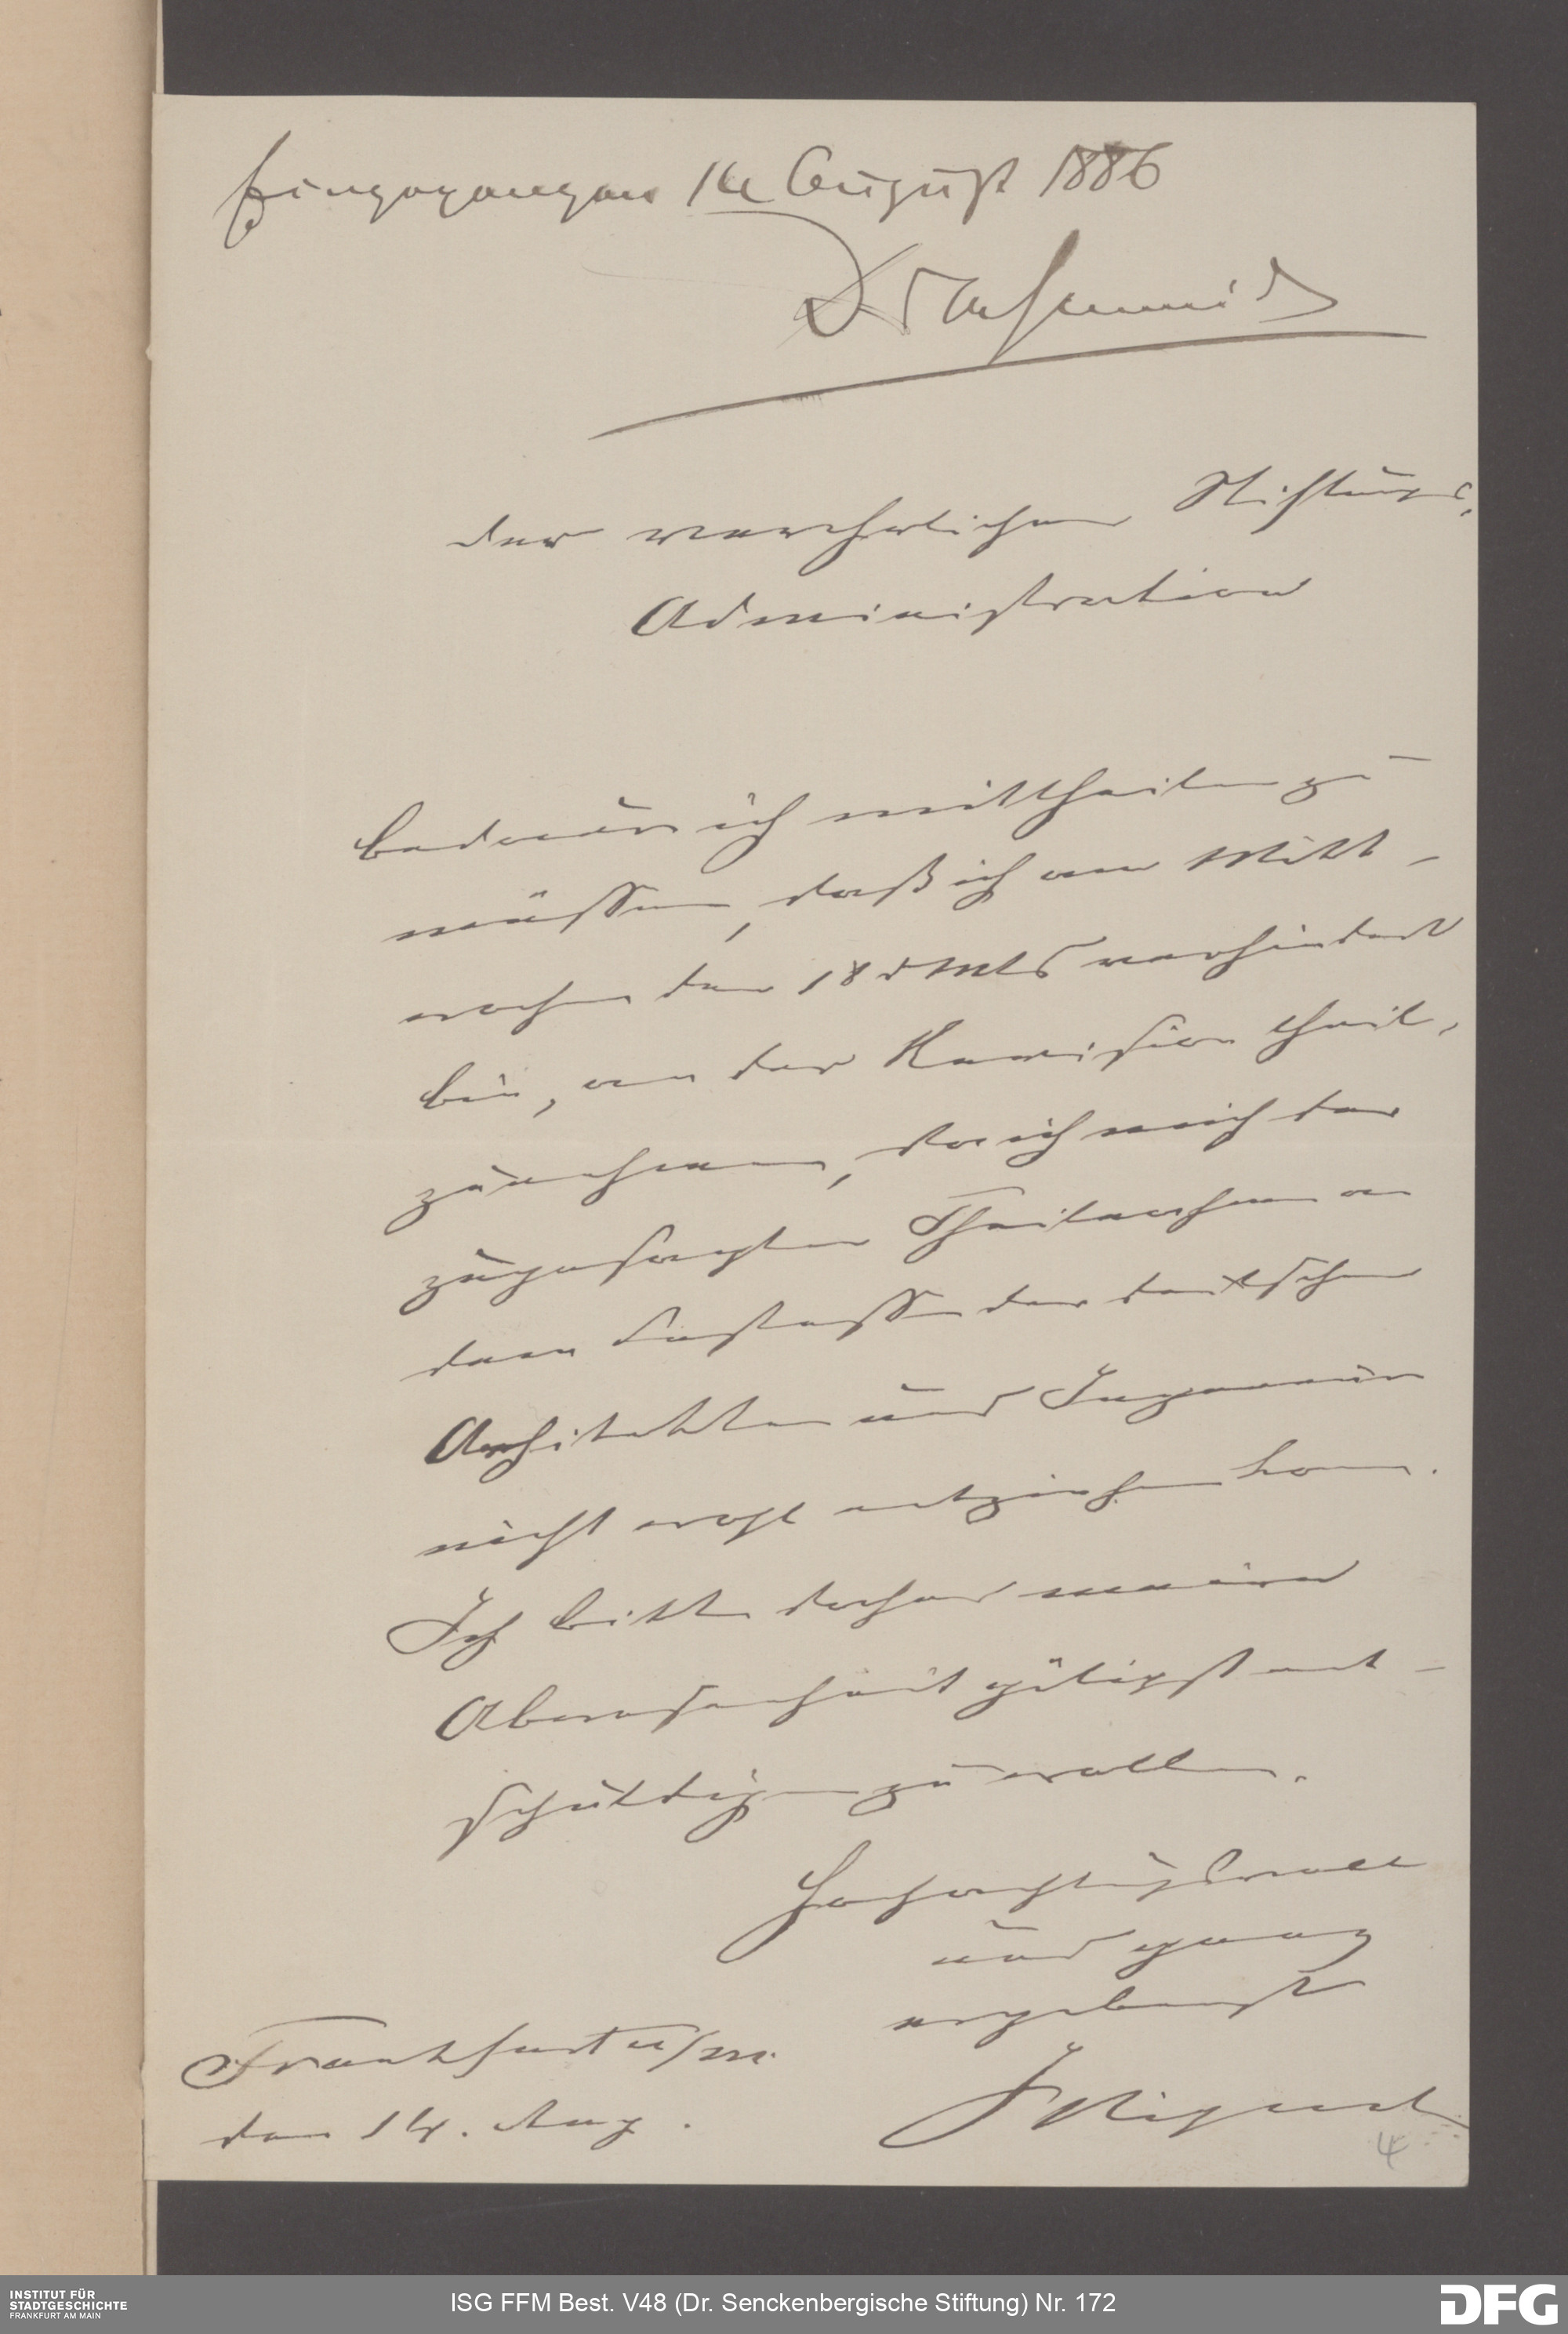 Eingegangen 14 August 1886
Dr Schmidt
Der verehrlichen Stiftungs,
Administration
bedaure ich mittheilen zu
müssen, daß ich am Mitt-
wochen den 18 d Mts verhindert
bin, an der Kommission theil,
zunehmen, da ich mich der
zugesagten Theilnahme an
dem Festessen der deutschen
Architekten und Ingenieure
nicht wohl entziehen kann.
Ich bitte daher meine
Abwesenheit gütigst ent-
schuldigen zu wollen.
Hochachtungsvoll
und ganz
ergebenst
Frankfurt a/M.
den 14. Aug.
Miquel
4
INSTITUT FÜR
STADTGESCHICHTE
FRANKFURT AM MAIN
ISG FFM Best. V48 (Dr. Senckenbergische Stiftung) Nr. 172
DFG